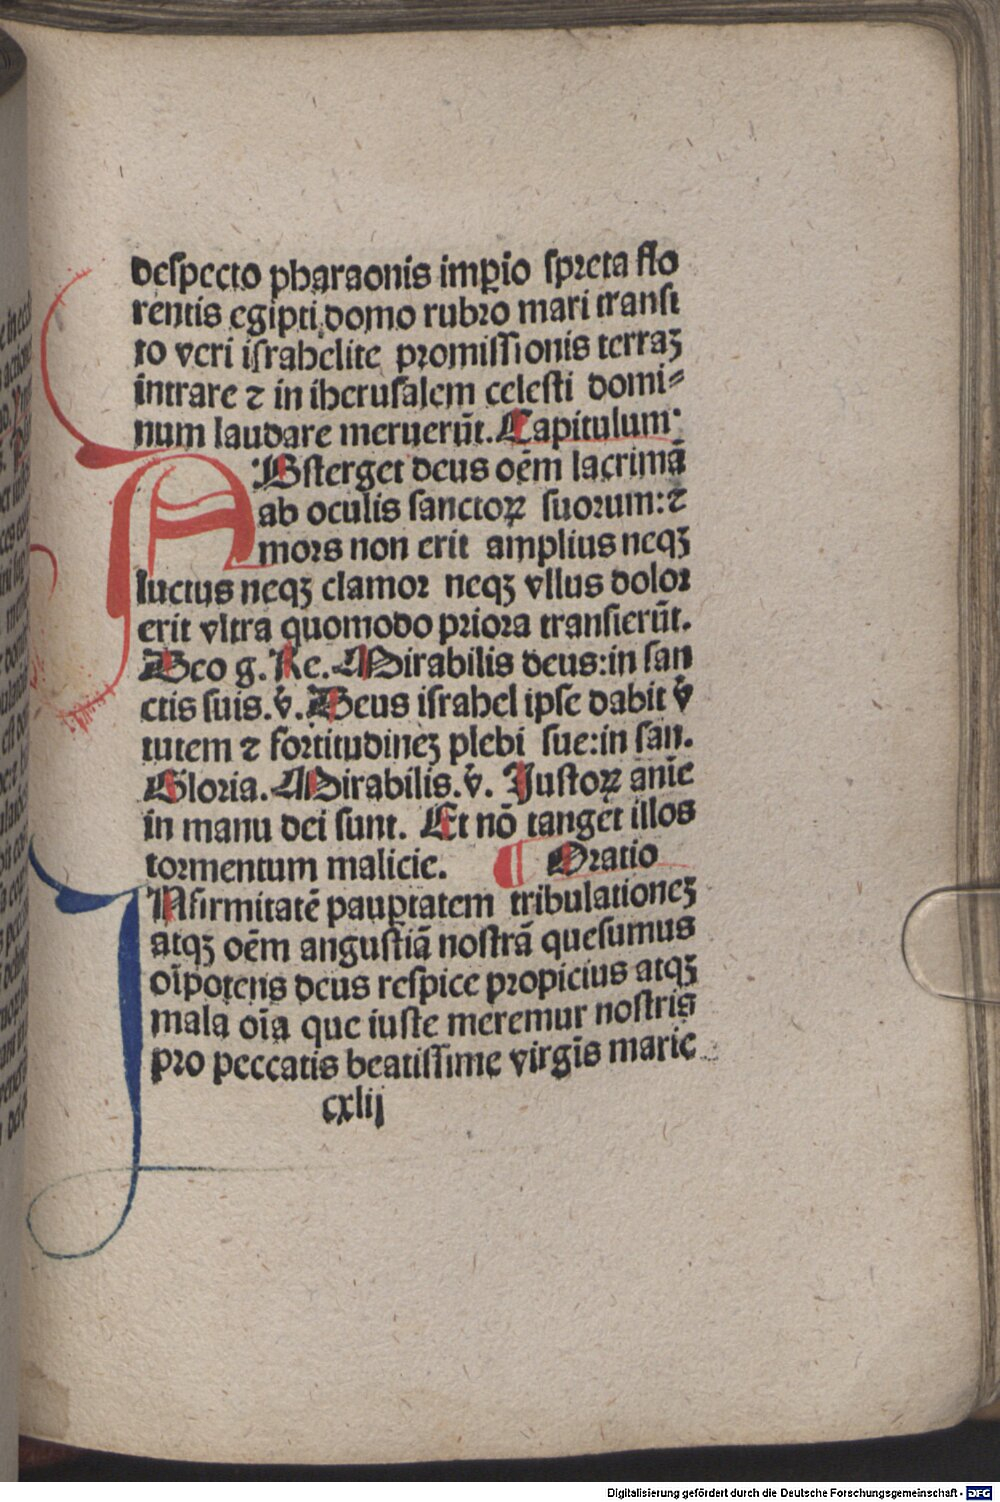 despecto pharaonis imꝑio spreta flo
rentis egipti domo rubro mari transi
to veri israhelite promissionis terraꝫ
intrare ⁊ in iherusalem celesti domi⸗
num laudare meruerūt. Capitulum
ABsterget deus oēm lacrimā
ab oculis sanctoꝝ suorum: ⁊
mors non erit amplius neqꝫ
luctus neqꝫ clamor neqꝫ vllus dolor
erit vltra quomodo priora transierūt.
Deo g. Re. Mirabilis deus: in san
ctis suis. v̄. Deus israhel ipse dabit v̄
tutem ⁊ fortitudineꝫ plebi sue: in san.
Gloria. Mirabilis. v̄. Justoꝝ anīe
in manu dei sunt. Et nō tanget illos
tormentum malicie. ¶ Oratio
INfirmitatē pauꝑtatem tribulationeꝫ
atqꝫ oēm angustiā nostrā quesumus
oīpotens deus respice propicius atqꝫ
mala oīa que iuste meremur nostris
pro peccatis beatissime virgīs marie
cxlij
Digitalisierung gefördert durch die Deutsche Forschungsgemeinschaft - DFG